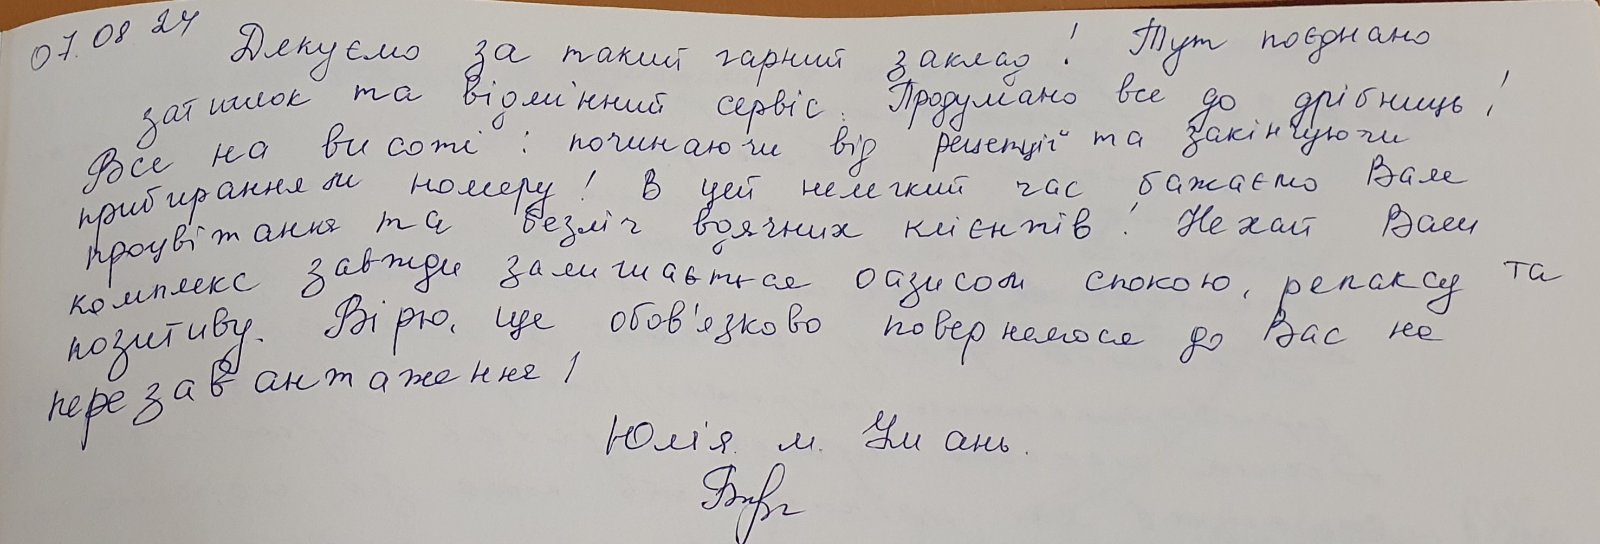 07.08 24 Дякуємо за такий гарний заклад! Тут поєднано
затишок та відмінний сервіс. Продумано все до дрібниць!
Все на висоті: починаючи від рецепції та закінчуючи
прибиранням номеру! В цей нелегкий час бажаємо Вам
процвітання та безліч вдячних клієнтів! Нехай Ваш
комплекс завжди залишається оазисом спокою, релаксу та
позитиву. Вірю, ще обов'язково повернемося до Вас на
перезавантаження!
Юлія. м. Умань.